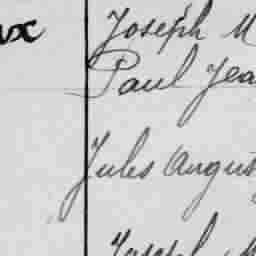 ux Joseph M
Paul Jea
Jules Augus
Joseph M